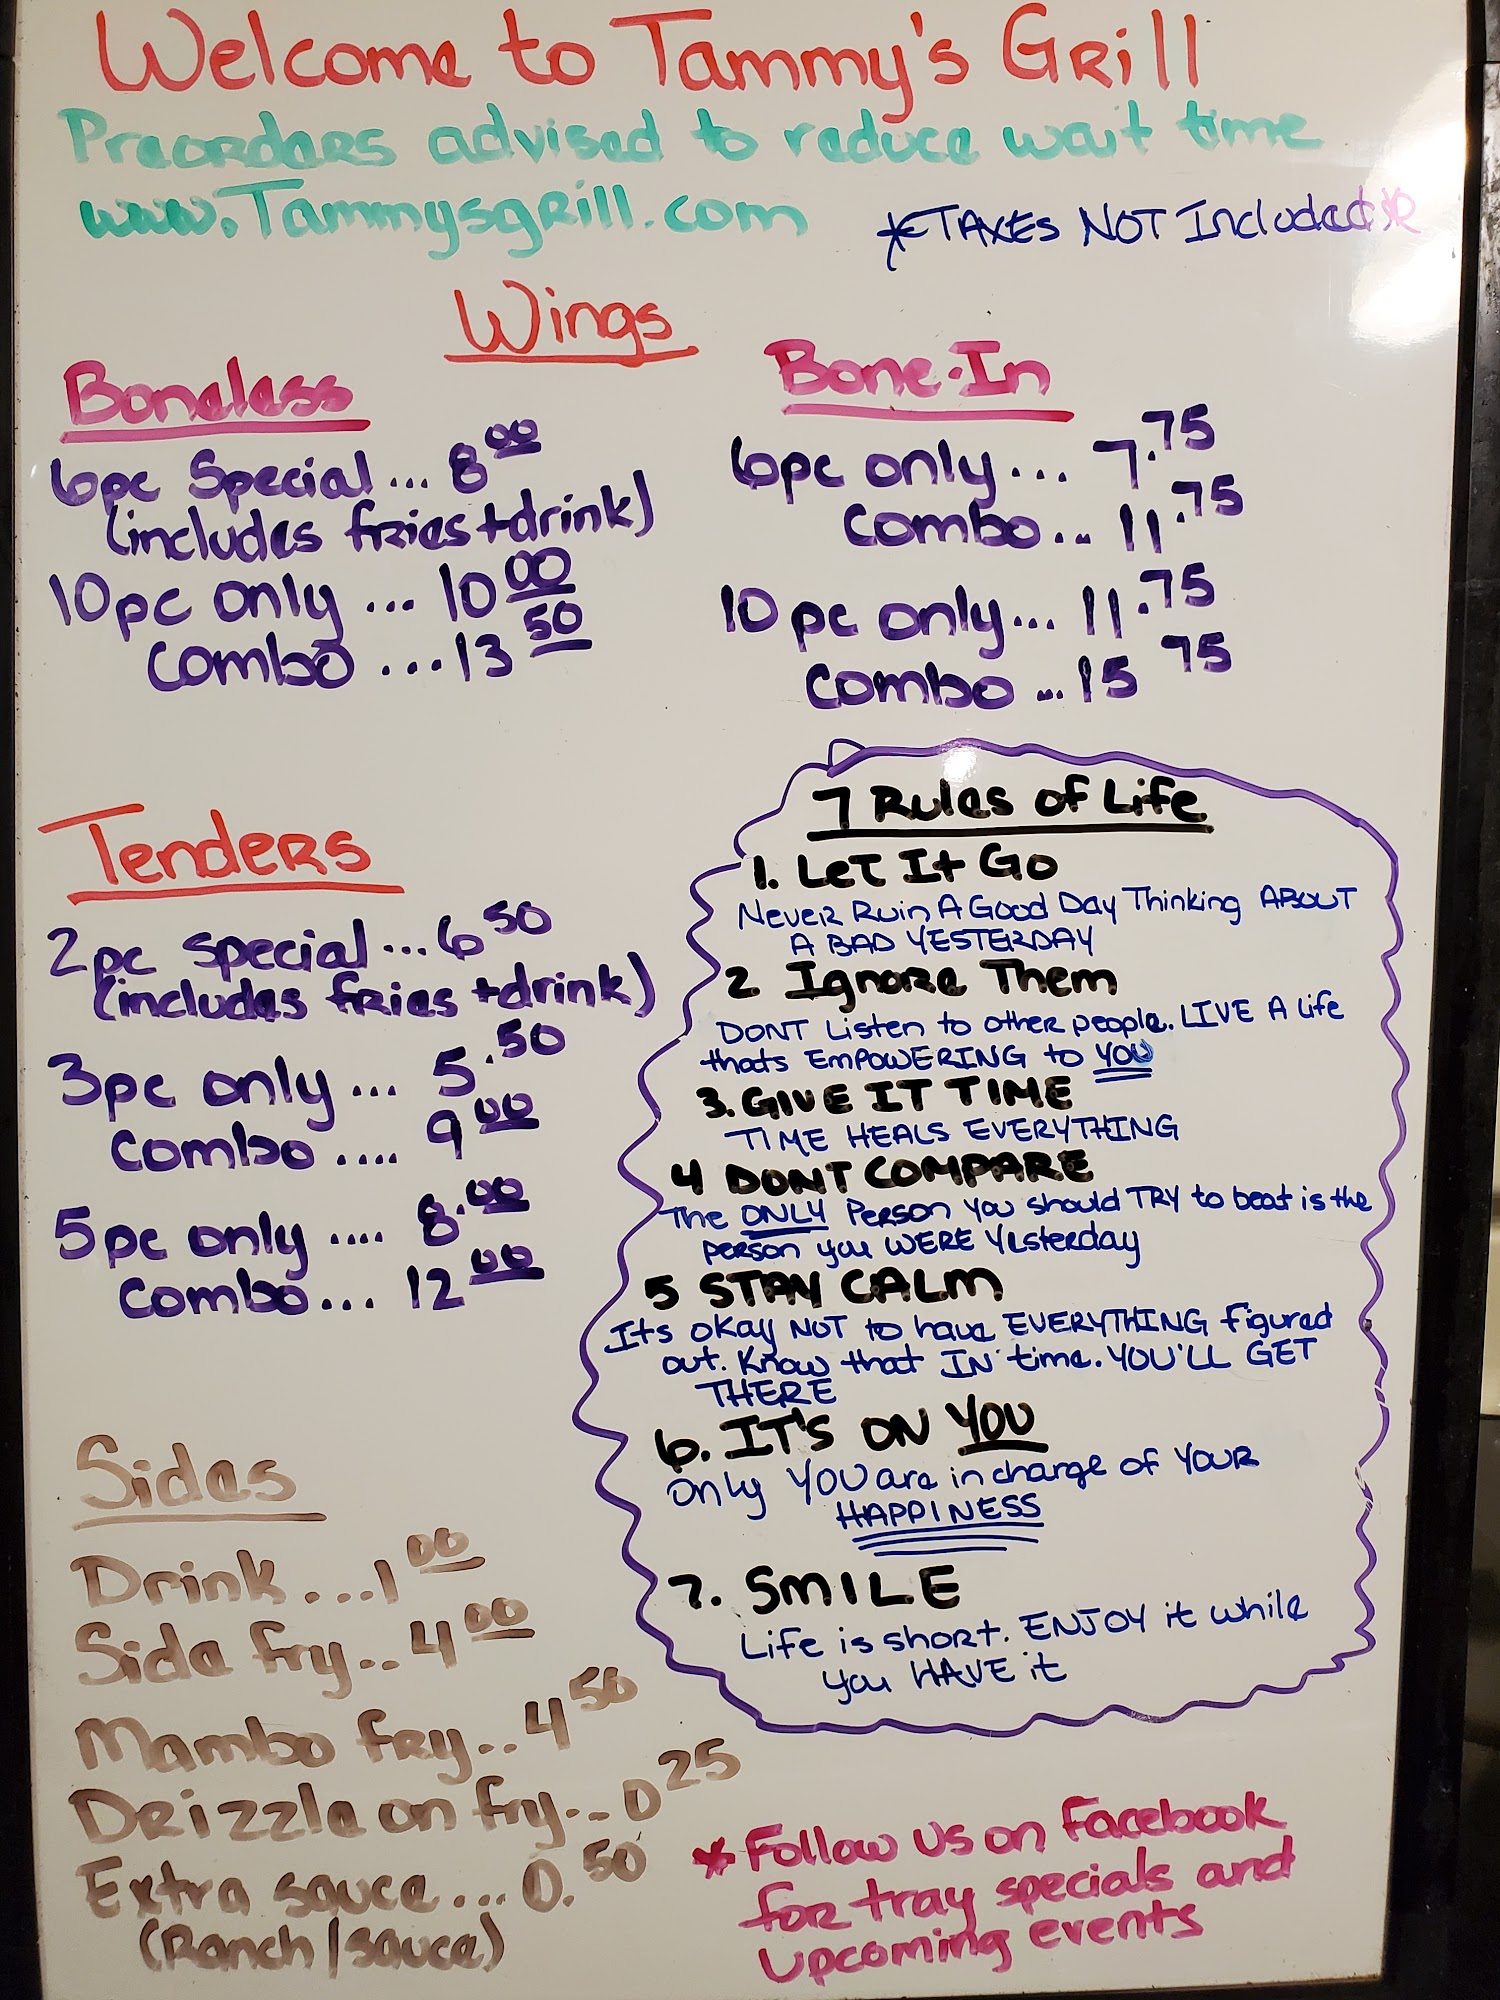 Welcome to Tammy's Grill
Preorders advised to reduce wait time
www.Tammysgrill.com
*TAXES NOT Included*
Wings
Boneless
6pc Special ... 8 00
(includes fries + drink)
10pc only ... 10 00
combo ... 13 50
Bone-In
6pc only ... 7.75
combo ... 11.75
10 pc only ... 11.75
combo ... 15 75
Tenders
2pc special ... 6 50
(includes fries + drink)
3pc only ... 5.50
combo .... 9 00
5pc only .... 8.00
combo ... 12 00
Sides
Drink ... 1 00
Side fry .. 4 00
Mambo fry .. 4 50
Drizzle on fry... 0 25
Extra sauce ... 0.50
(Ranch/sauce)
7 Rules of Life
1. Let It Go
Never Ruin A Good Day Thinking ABOUT
A BAD YESTERDAY
2 Ignore Them
DONT Listen to other people. LIVE A life
thats EMPOWERING to YOU
3. GIVE IT TIME
TIME HEALS EVERYTHING
4 DONT COMPARE
The ONLY Person You should TRY to beat is the
person you WERE Yesterday
5 STAY CALM
Its okay NOT to have EVERYTHING figured
out. Know that IN time. YOU'LL GET
THERE
6. IT'S ON YOU
Only YOU are in charge of YOUR
HAPPINESS
7. SMILE
Life is short. ENJOY it while
you HAVE it
* Follow us on Facebook
for tray specials and
upcoming events